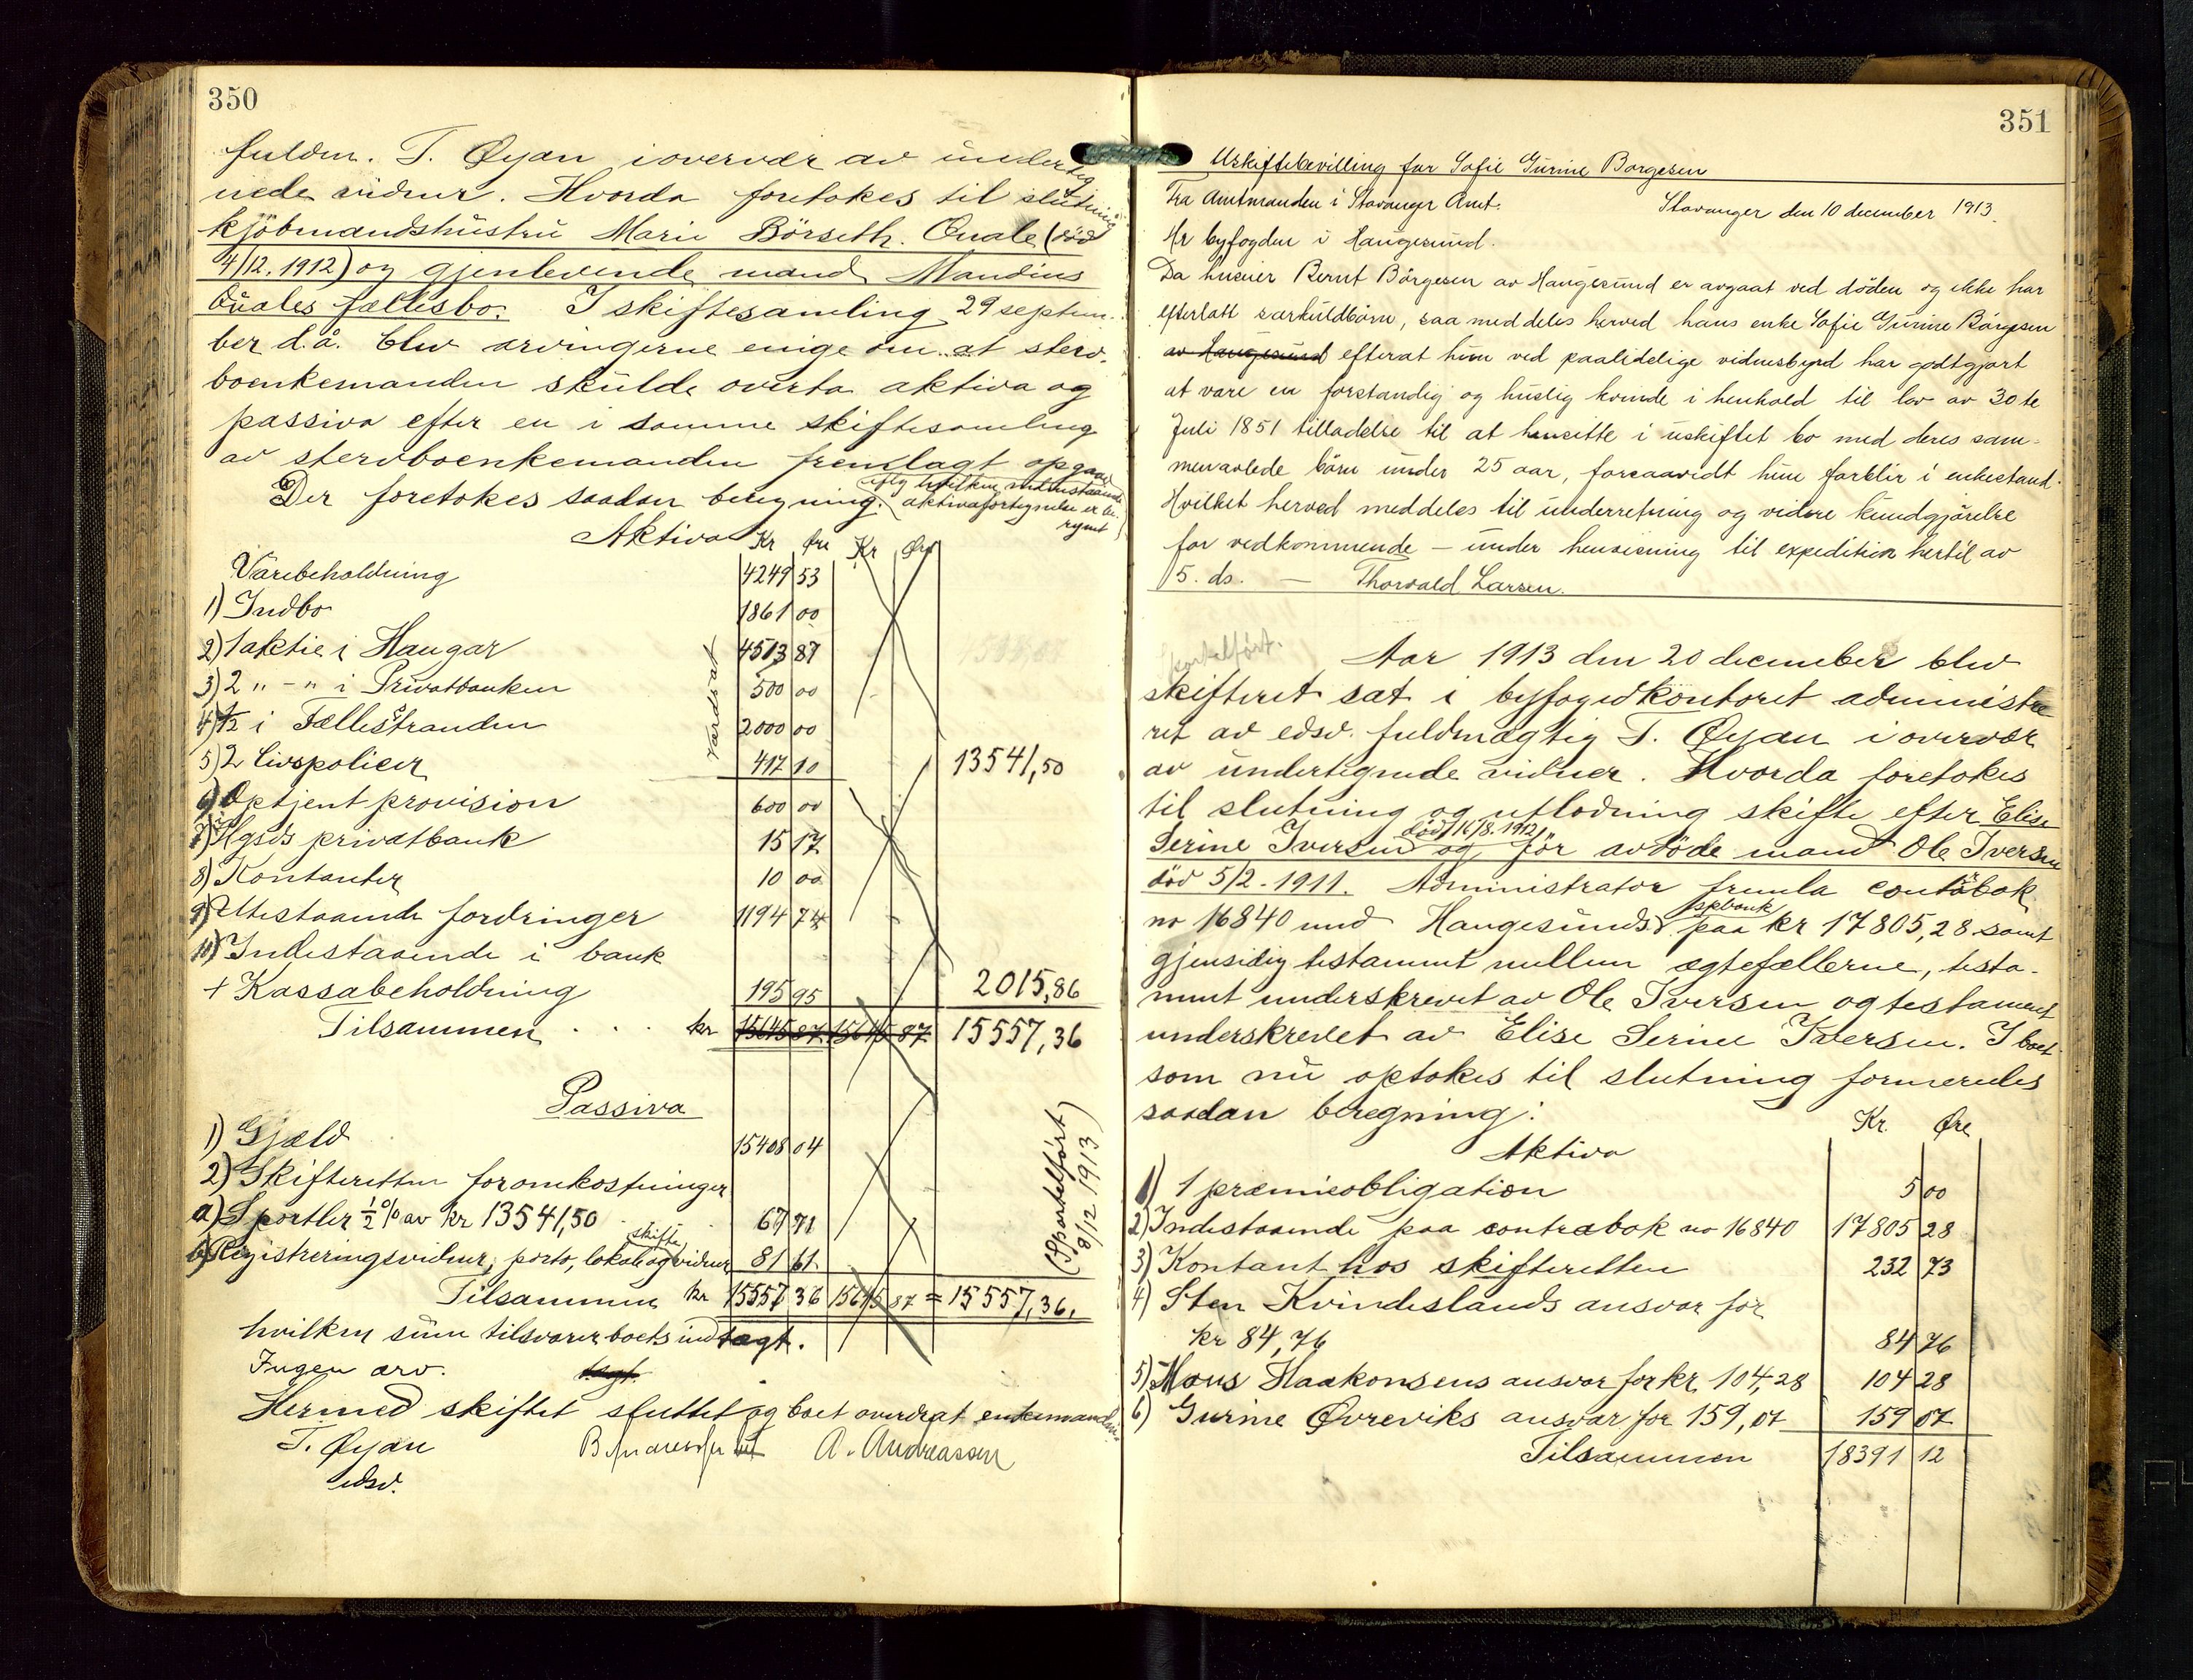 350
fuldm. T. Øyan i overvær av underteg
nede vidner. Hvorda foretokes til slutning
kjöbmandshustru Marie Börseth. Quale (död
4/12. 1912) og gjenlevende mand Mandius
Quales fællesbo. I skiftesamling 29 septem-
ber d.å. blev arvingerne enige om at sterv-
boenkemanden skulde overta aktiva og
passiva efter en i samme skiftesamling
av stervboenkemanden fremlagt opgave
Der foretokes saadan beregning. (iflg hvilken nedenstaaende
aktivafortegnelse er be-
regnet)
Aktiva Kr Øre Kr Øre
Varebeholdning 4249 53
1) Indbo 1861 00
2) 1 aktie i Haugar 4513 87
3) 2 " - " i Privatbanken 500 00
4) 1/12 i Fællesstranden 2000 00
5) 2 Livspolicer 417 10 13541,50
6) Optjent provision 600 00
7) Hgsds privatbank 15 17
8) Kontanter 10 00
9) Utestaaende fordringer 1194 74
10) Indestaaende i bank
+ Kassabeholdning 195 95 2015,86
Tilsammen . . . kr 15645 87 15645 87 15557,36
Passiva
1) Gjæld 15408 04
2) Skifteretten for omkostninger
a) Sportler ½ % av kr 13541,50 67 71
skifte
b) Registreringsvidner, porto, lokale og vidner 81 61
Tilsammen kr 15557 36 15645 87 = 15557,36.
(Sportelført
8/12 1913)
hvilken sum tilsvarer boets indtægt.
Ingen arv.
Hermed skiftet sluttet og boet overdrat enkemanden
T. Øyan A. Andreassen
edsv.
351
Uskiftebevilling for Sofie Gurine Borgesen
Fra Amtmanden i Stavanger Amt. Stavanger den 10 december 1913.
Hr byfogden i Haugesund.
Da huseier Bernt Börgesen av Haugesund er avgaat ved döden og ikke har
efterlatt særkuldbörn, saa meddeles herved hans enke Sofie Gurine Börgesen
av Haugesund efterat hun ved paalidelige vidnesbyrd har godtgjort
at være en forstandig og huslig kvinde i henhold til lov av 30te
Juli 1851 tilladelse til at hensitte i uskiftet bo med deres sam-
menavlede börn under 25 aar, forsaavidt hun forblir i enkestand.
Hvilket herved meddeles til underretning og videre kundgjörelse
for vedkommende - under henvisning til expedition hertil av
5. ds. - Thorvald Larsen.
Sportelført.
Aar 1913 den 20 december blev
skifteret sat i byfogedkontoret administre
ret av edsv. fuldmægtig T. Øyan i overvær
av undertegnede vidner. Hvorda foretokes
til slutning og utlodning skifte efter Elise
död 16/8. 1912
Serine Iversen og för avdöde mand Ole Iversen
död 5/2 - 1911. Administrator fremla contrabok
spbank
no 16840 med Haugesunds paa kr 17805,28 samt
gjensidig testament mellem ægtefællerne, testa-
ment underskrevet av Ole Iversen og testament
underskrevet av Elise Serine Iversen. I boet
som nu optokes til slutning formeredes
saadan beregning:
Kr. Øre
Aktiva
1) 1 præmieobligation 5 00
2) Indestaaende paa contrabok no 16840 17805 28
3) Kontant hos skifteretten 232 73
4) Sten Kvindeslands ansvar for
kr 84,76 84 76
5) Hans Haakonsens ansvar for kr 104,28 104 28
6) Gurine Øvreviks ansvar for 159,07 159 07
Tilsammen 18391 12